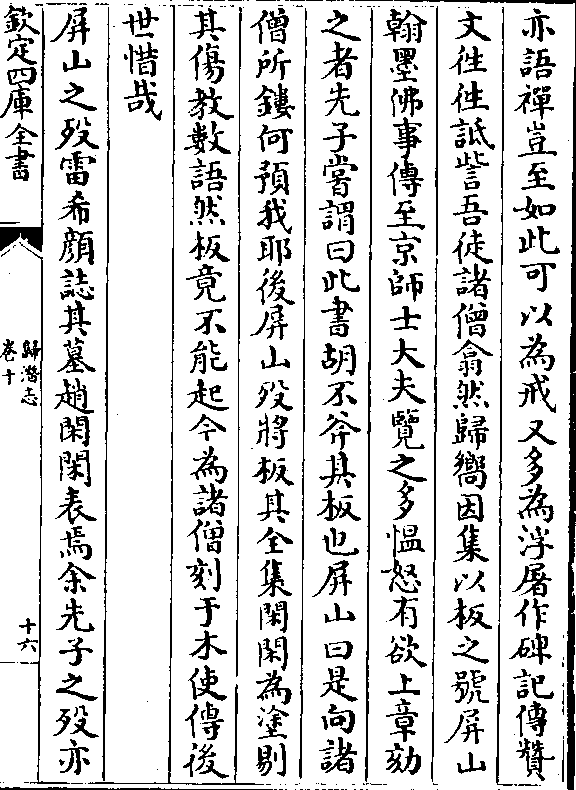 亦語禪豈至如此可以為戒又多為浮屠作碑記傳贊
文往往詆訾吾徒諸僧翕然歸嚮因集以板之號屏山
翰墨佛事傳至京師士大夫覽之多愠怒有欲上章劾
之者先子嘗謂曰此書胡不斧其板也屏山曰是向諸
僧所鏤何預我耶後屏山歿將板其全集閑閑為塗剔
其傷教數語然板竟不能起今為諸僧刻于木使傳後
世惜哉
屏山之歿雷希顔誌其墓趙閑閑表焉余先子之歿亦
欽定四庫全書
歸潛志
卷十
十六